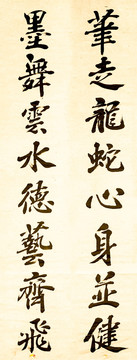 筆走龍蛇心身並健
墨舞雲水德藝齊飛